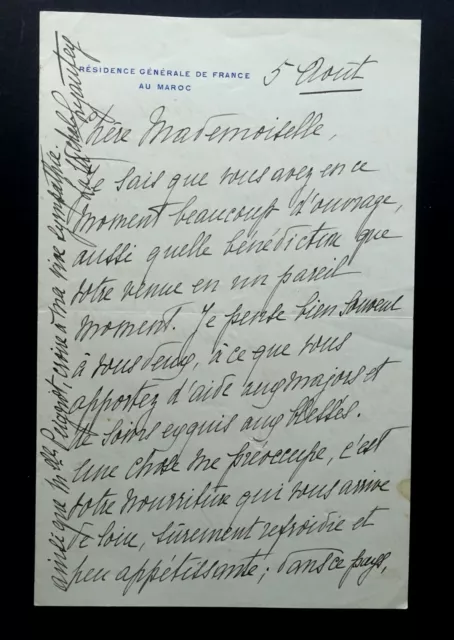 RÉSIDENCE GÉNÉRALE DE FRANCE
AU MAROC
5 Août
Chère Mademoiselle,
Je sais que vous avez en ce
moment beaucoup d'ouvrage,
aussi quelle bénédiction que
votre venue en un pareil
moment. Je pense bien souvent
à vous deux, à ce que vous
apportez d'aide aux majors et
de soins exquis aux blessés.
Une chose me préoccupe, c'est
votre nourriture qui vous arrive
de loin, sûrement refroidie et
peu appétissante; dans ce pays,
ainsi que Mlle Peugnot, croire à ma vive sympathie.
Lyautey